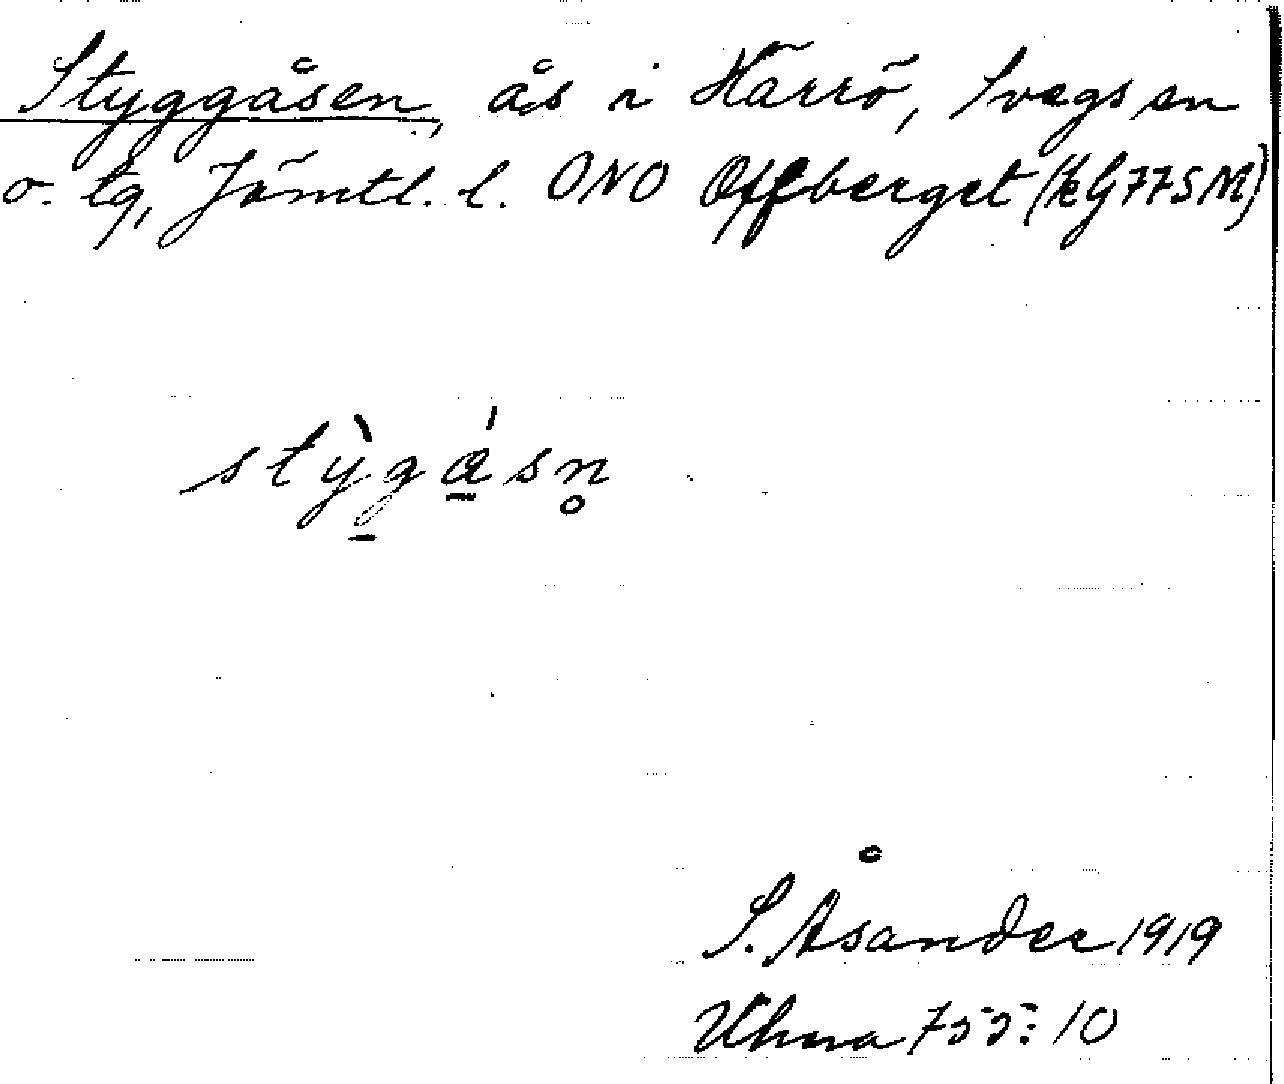 Styggåsen, ås i Härrö, Svegs sn
o. tg, Jämtl. l. ONO Offberget (kG77SM)
stỳgása̲n̥
S. Åsander 1919
Uhma 755:10